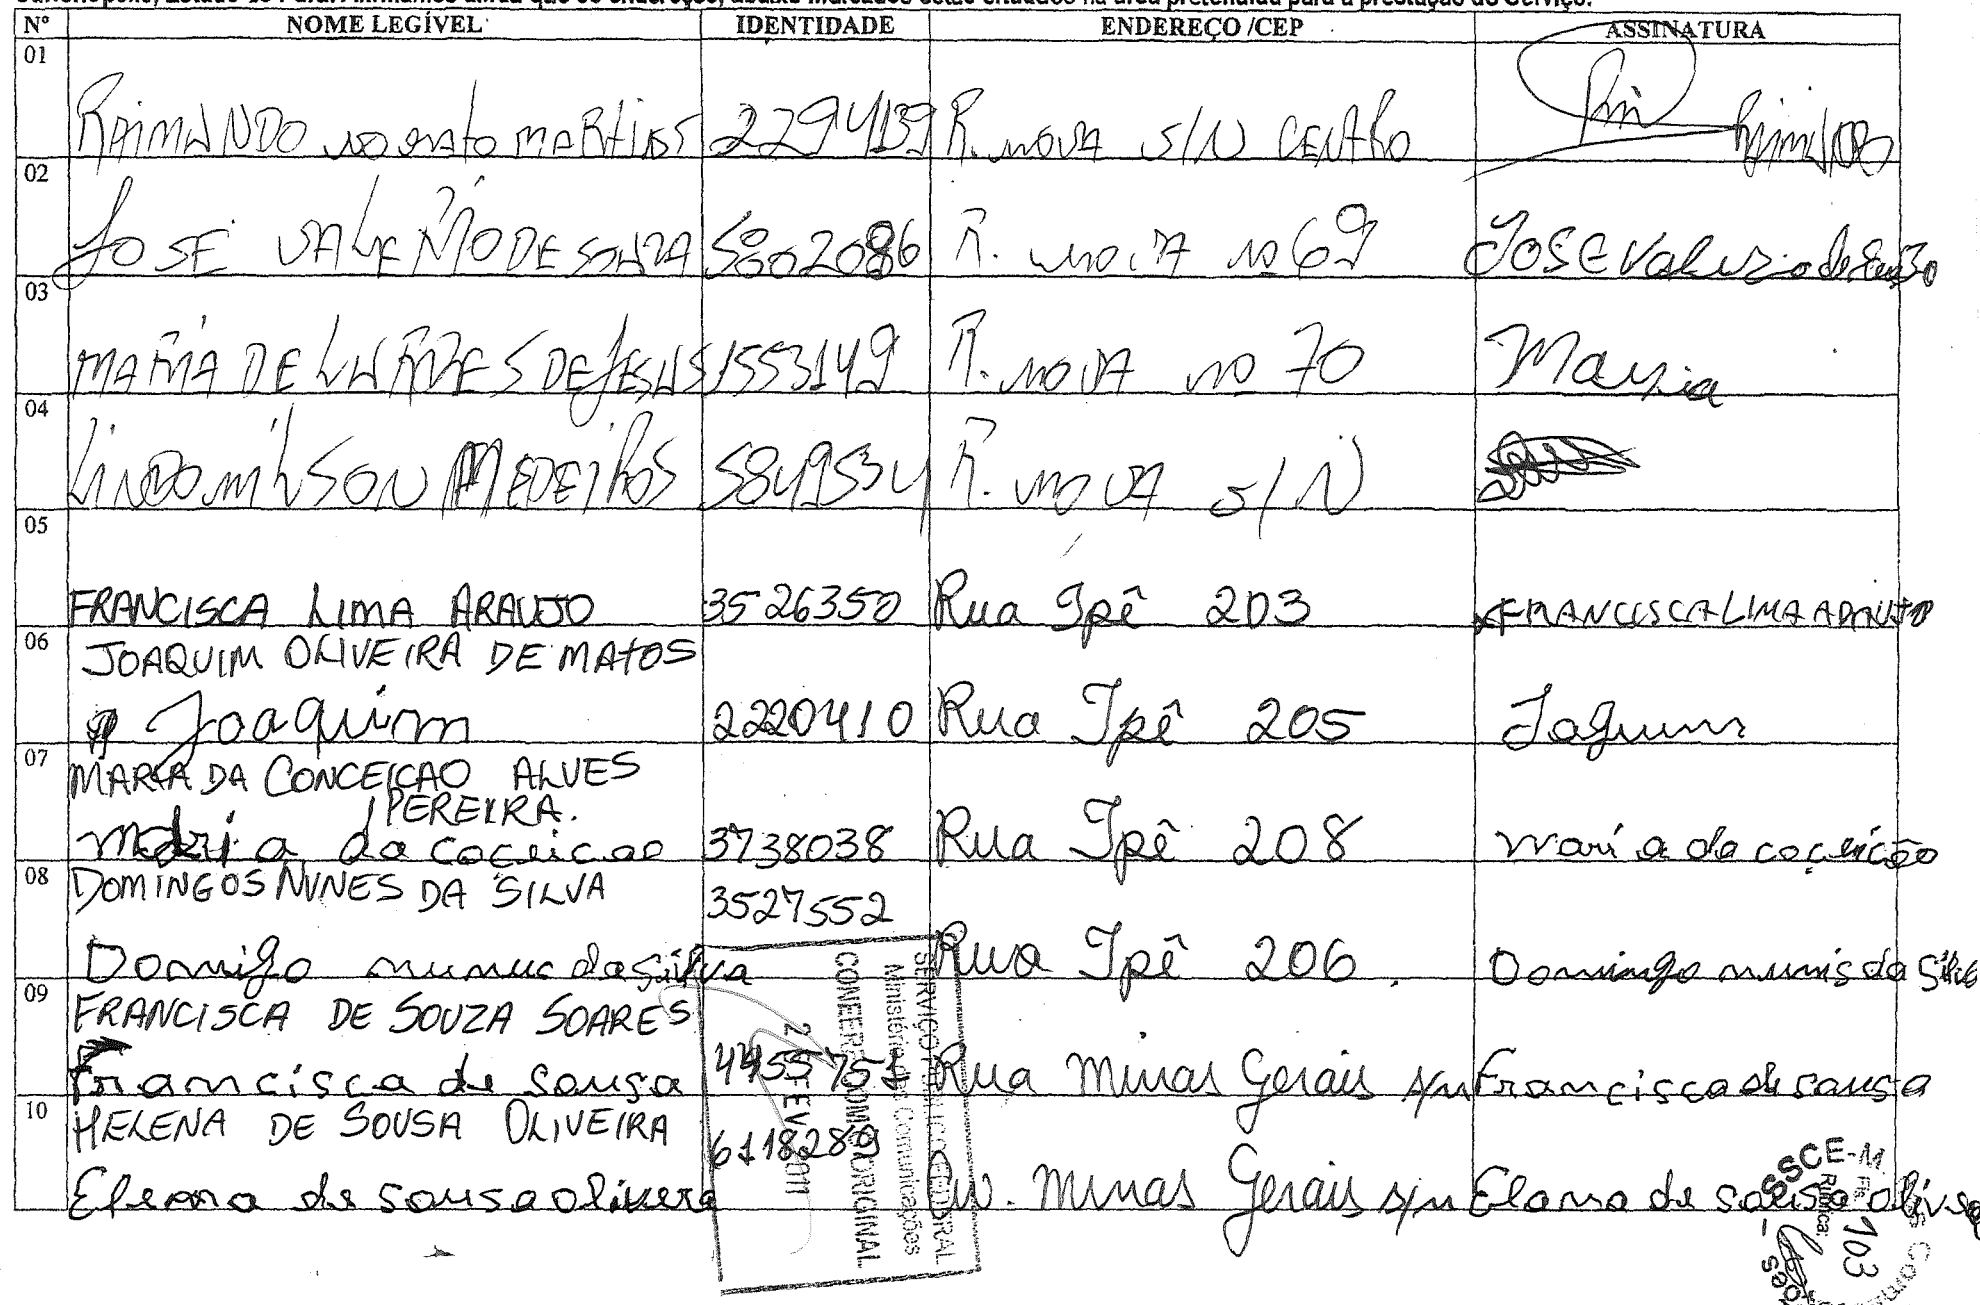 Nº NOME LEGÍVEL IDENTIDADE ENDEREÇO /CEP ASSINATURA
01
RAIMUNDO nonato MARTINS 2294139 R. nova S/N CENTRO Raimundo
02
JOSE VALERIO DE SOUZA 5802086 R. nova no 69 JOSE Valerio de
03
MARIA DE LURDES DE JESUS 1553149 R. nova no 70 Maria
04
LINDOMILSON MEDEIROS 5849534 R. nova S/N
05
FRANCISCA LIMA ARAUJO 3526350 Rua Ipê 203 FRANCISCA LIMA ARAUJO
06
JOAQUIM OLIVEIRA DE MATOS
Joaquim 2220410 Rua Ipê 205 Jaquim
07
MARIA DA CONCEICAO ALVES
PEREIRA.
Maria da coceicao 3738038 Rua Ipê 208 maria da coceicão
08
DOMINGOS NUNES DA SILVA 3527552
Domigo nunuc da silva Rua Ipê 206 Domingo nunis da Silva
09
FRANCISCA DE SOUZA SOARES
Francisca de sousa 4455751 Rua Minas Gerais s/n Francisca de sousa
10
HELENA DE SOUSA OLIVEIRA 6118289
Elena de sousa olivera Av. Minas Gerais s/n Elana de sousa
SERVIÇO PÚBLICO FEDERAL
Ministério das Comunicações
CONFERE COM O ORIGINAL
FEV 2011
SSCE-M
Fls
103
Rubrica: